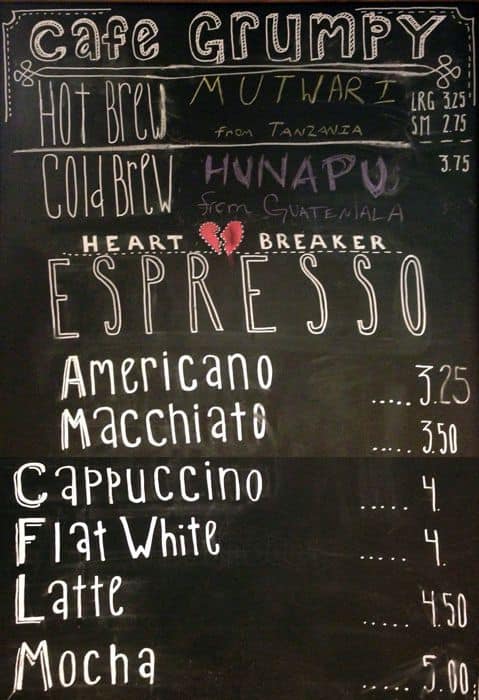 Cafe Grumpy
Hot Brew MUTWARI LRG 3.25
from TANZANIA SM 2.75
Cold Brew HUNAPU 3.75
from GUATEMALA
HEART BREAKER
ESPRESSO
Americano ..... 3.25
Macchiato ..... 3.50
Cappuccino ..... 4.
Flat White ..... 4.
Latte ..... 4.50
Mocha ..... 5.00